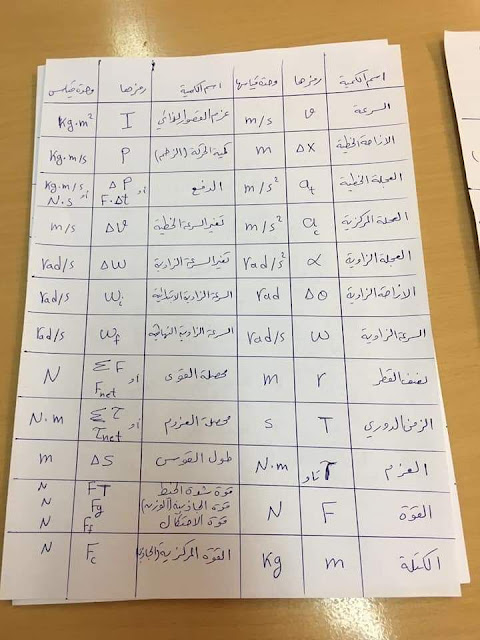 اسم الكمية رمزها وحدة قياسها اسم الكمية رمزها وحدة قياس
السرعة v m/s عزم القصور الذاتي I Kg.m²
الازاحة الخطية Δx m كمية الحركة (الزخم) P Kg.m/s
العجلة الخطية at m/s² الدفع ΔP او F.Δt Kg.m/s او N.s
العجلة المركزية ac m/s² تغير السرعة الخطية Δv m/s
العجلة الزاوية α rad/s² تغير السرعة الزاوية Δω rad/s
الازاحة الزاوية Δθ rad السرعة الزاوية الابتدائية ωi rad/s
السرعة الزاوية ω rad/s السرعة الزاوية النهائية ωf rad/s
نصف القطر r m محصلة القوى ΣF او Fnet N
الزمن الدوري T s محصلة العزوم Στ او τnet N.m
العزم τ تاو N.m طول القوس ΔS m
القوة F N قوة شدة الخيط FT N
قوة الجاذبية (الوزن) Fg N
قوة الاحتكاك Ff N
الكتلة m Kg القوة المركزية (الجاذبة) Fc N